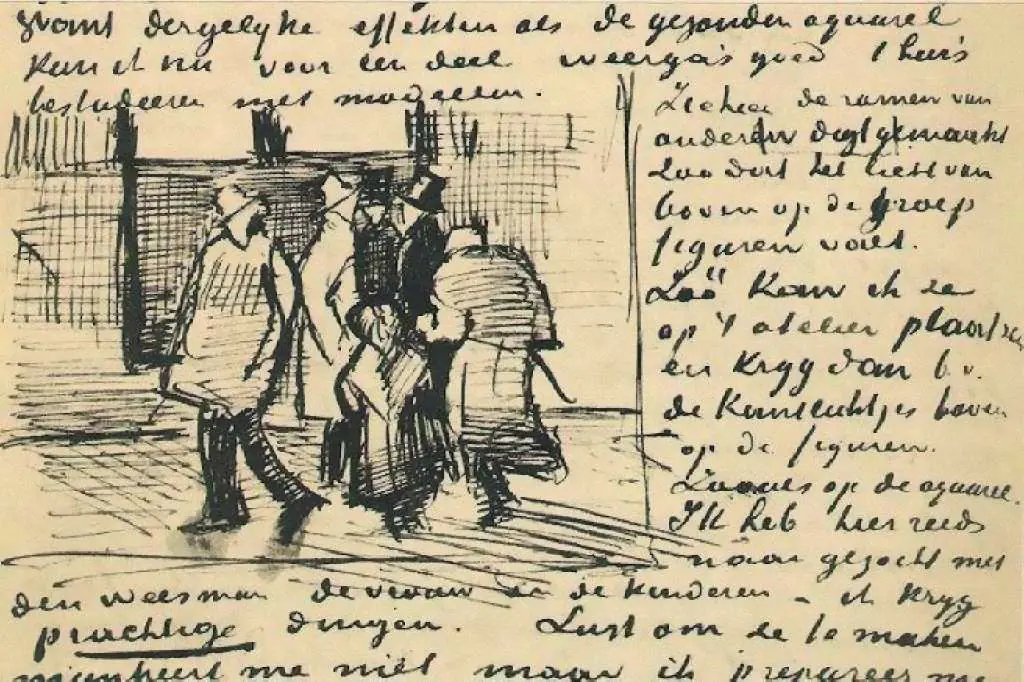 want dergelyke effekten als de gezonden aquarel
kan ik nu voor een deel weerga's goed t huis
bestudeeren met modellen.
Ziehier de ramen van
onderen digt gemaakt
Zoo dat het licht van
boven op de groep
figuren valt.
Zoó kan ik ze
op 't atelier plaatsen
en kryg dan b.v.
de kantlichtjes boven
op de figuren.
Zooals op de aquarel.
Ik heb hier reeds
naar gezocht met
den weesman de vrouw en de kinderen – ik kryg
prachtige dingen. Lust om ze te maken
mankeert me niet maar ik prepareer me